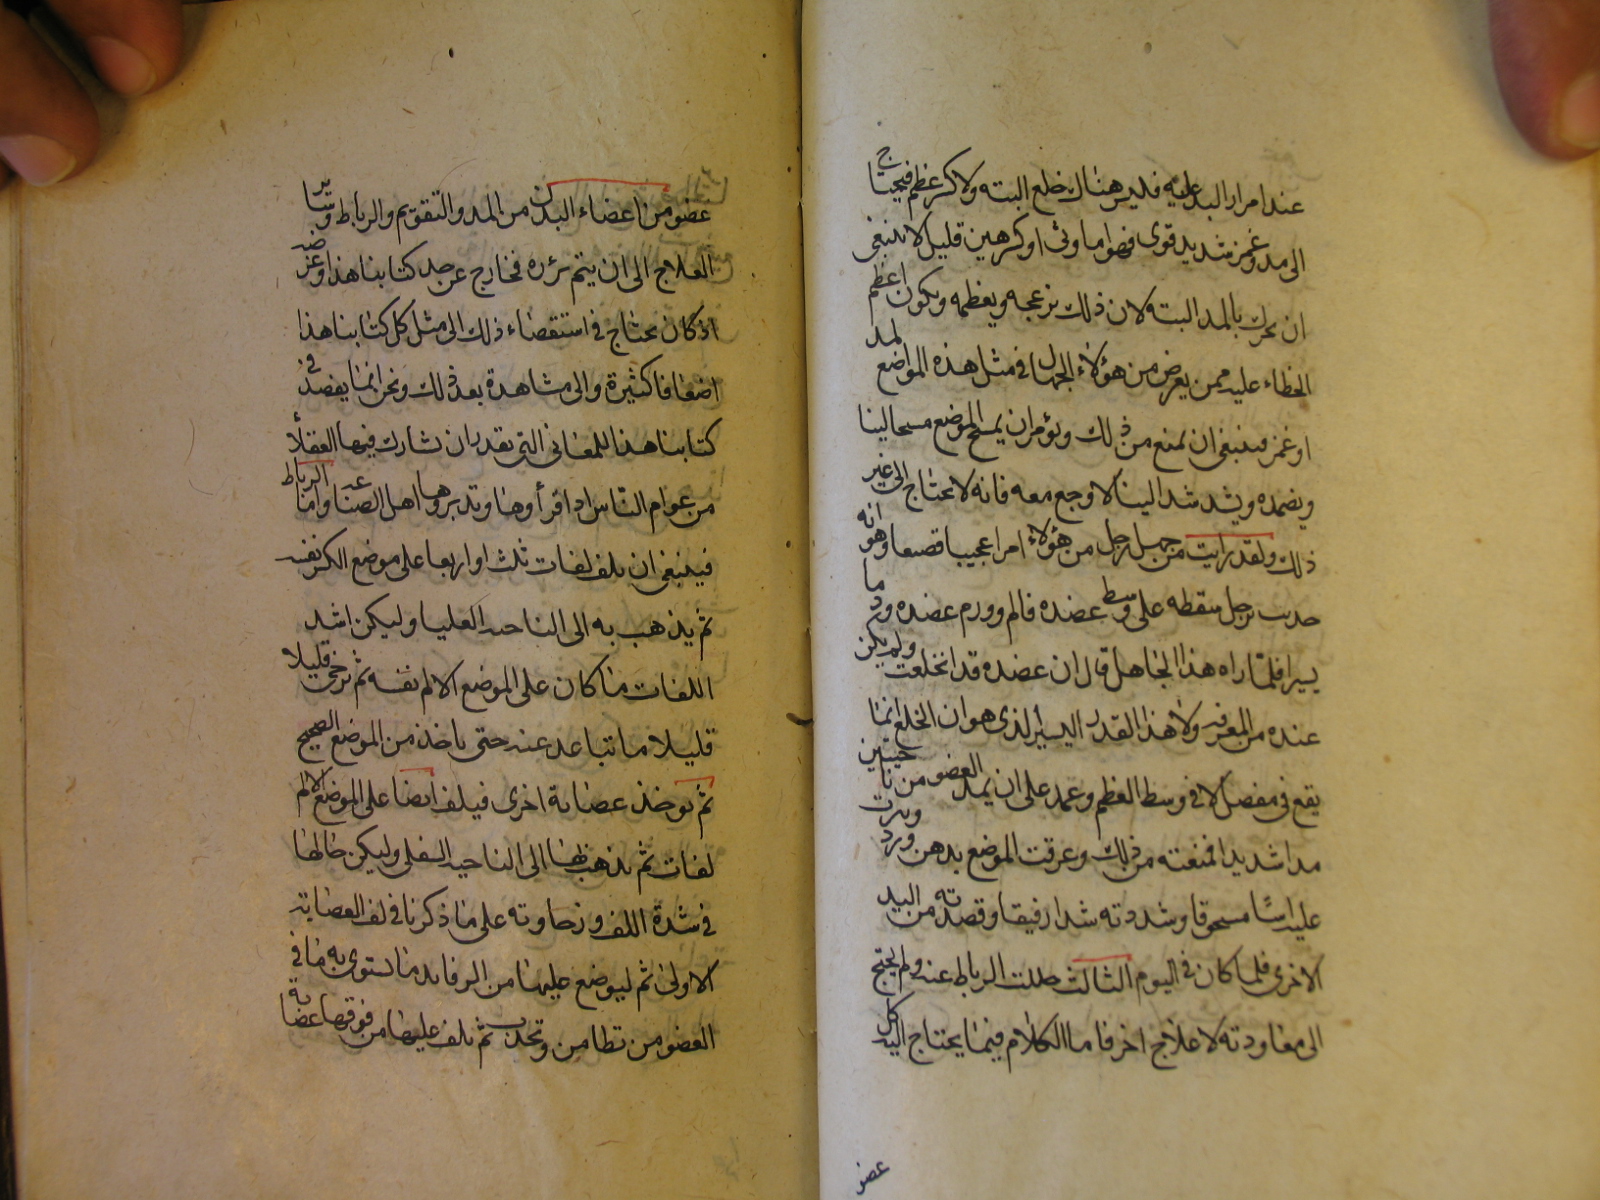 عند امرار اليد عليه فليس هناك خلع البته ولا كسر عظم فيحتاج
الى مد وغمز شديد قوى فهو اما وثى او كسر هين قليل لا ينبغى
ان تحرك بالمد البته لان ذلك يزعجه ويعظمه ويكون اعظم
الخطاء عليه ممن يعرض من هؤلاء الجهال فى مثل هذه المواضع لمد
او غمز فينبغى ان تمنع من ذلك وتؤمر ان يمسح الموضع مسحا لينا
ويضمده ويشد شدا لينا لا وجع معه فانه لا يحتاج الى غير
ذلك ولقد رايت من جهل رجل من هؤلاء امرا عجيبا وهو انه
حدث برجل سقطه على وسط عضده فالم وورم عضده ورما
يسيرا فلما راه هذا الجاهل قال ان عضده قد انخلعت ولم يكن
عنده من المعرفه ولا هذا القدر اليسير الذى هو ان الخلع انما
يقع فى مفصل لا فى وسط العظم وعمد على ان يمد العضو من ناحيتين
مدا شديدا فمنعته من ذلك وعرقت الموضع بدهن ورد ونثرت
عليه اسًا مسحوقا وشددته شدا رفيقا وفصدته من اليد
الاخرى فلما كان فى اليوم الثالث حللت الرباط عنه ولم يحتج
الى معاودته لا علاج اخر فاما الكلام فيما يحتاج اليه كل
عضو
عضو من اعضاء البدن من المد والتقويم والرباط وتتا
العلاج الى ان يتم برؤه فخارج عن حد كتابنا هذا وغرضه
اذ كان يحتاج فى استقصاء ذلك الى مثل كل كتابنا هذا
اضعافا كثيرة والى مشاهدة بعد ذلك ونحن انما يقصد فى
كتابنا هذا للمعانى التى يقدر ان تشارك فيها العقلأ
من عوام الناس اذا قرأوها وتدبروها اهل الصناعه واما الرباط
فينبغى ان يلف لفات ثلث او اربعا على موضع الكسر نفسه
ثم يذهب به الى الناحيه العليا وليكن اشد
اللفات ما كان على الموضع الالم نفسه ثم ترخى قليلا
قليلا ما تباعد عنه حتى ياخذ من الموضع الصحيح
ثم يوخذ عصابة اخرى فيلف ايضا على الموضع الالم
لفات ثم يذهب بها الى الناحيه السفلى وليكن حالها
فى شدة اللف ورخاوته على ما ذكرنا فى لف العصابة
الاولى ثم ليوضع عليها من الرفايد ما يستوى به ما فى
العضو من تطامن وتحدب ثم يلف عليها من فوقها عصابة